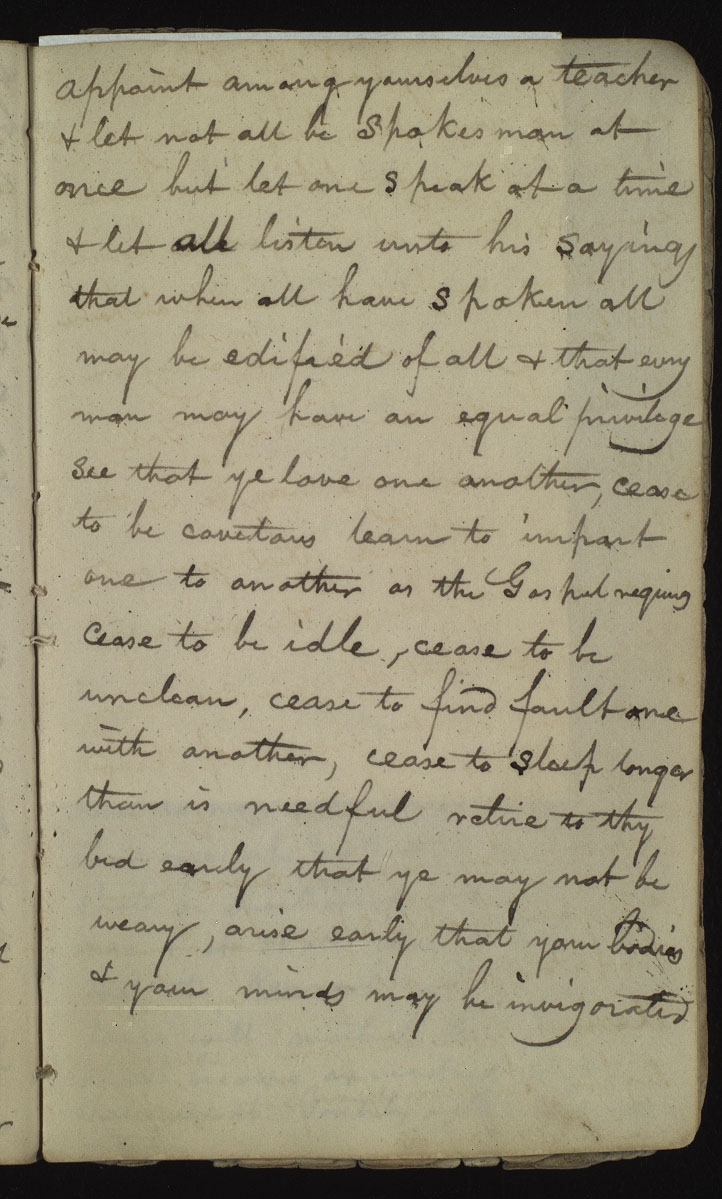 appoint among yourselves a teacher
& let not all be Spokesman at
once but let one Speak at a time
& let all listen unto his Sayings
that when all have Spoken all
may be edified of all & that evry
man may have an equal privilege
See that ye love one another, cease
to be covetous learn to impart
one to another as the Gospel requires
Cease to be idle, cease to be
unclean, cease to find fault one
with another, cease to Sleep longer
than is needful retire to thy
bed early that ye may not be
weary, arise early that your bodies
& your minds may be invigorated